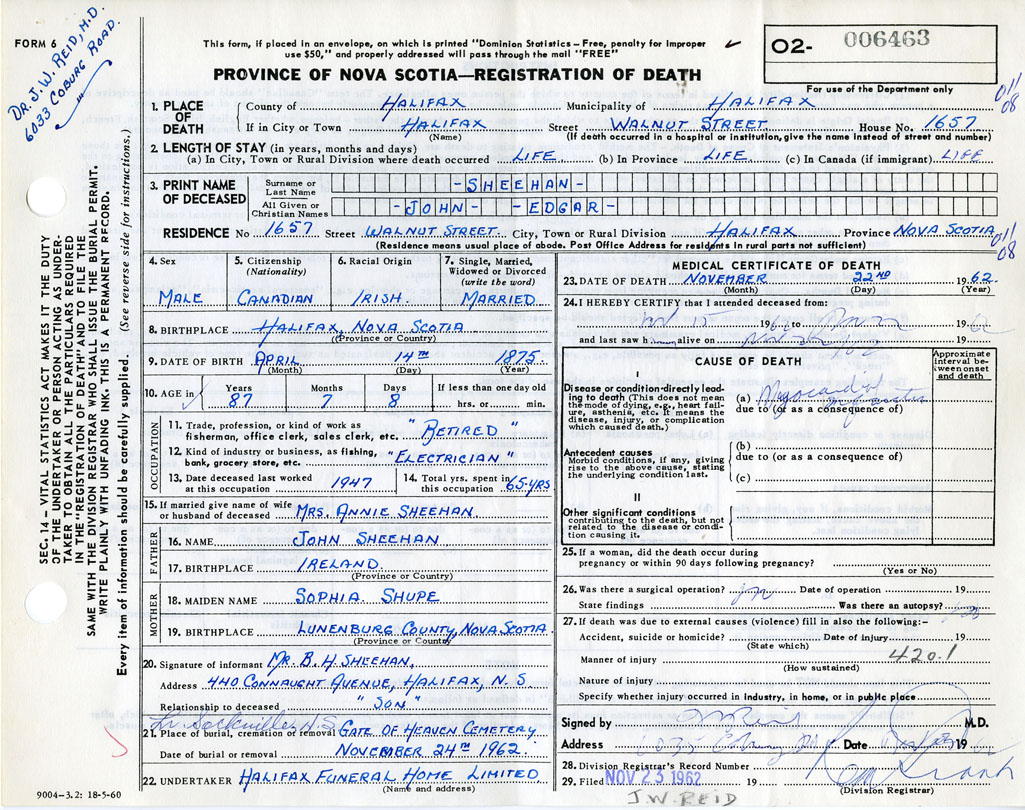 FORM 6
DR. J. W. REID, M.D.
6033 COBURG ROAD.
This form, if placed in an envelope, on which is printed "Dominion Statistics – Free, penalty for improper
use $50," and properly addressed will pass through the mail "FREE"
PROVINCE OF NOVA SCOTIA—REGISTRATION OF DEATH
02- 006463
For use of the Department only
011/08
1. PLACE OF DEATH County of HALIFAX Municipality of HALIFAX
If in City or Town HALIFAX Street WALNUT STREET. House No. 1657
(Name) (If death occurred in a hospital or institution, give the name instead of street and number)
2. LENGTH OF STAY (in years, months and days)
(a) In City, Town or Rural Division where death occurred LIFE (b) In Province LIFE. (c) In Canada (if immigrant) LIFE
3. PRINT NAME OF DECEASED
Surname or Last Name - SHEEHAN -
All Given or Christian Names - JOHN - - EDGAR -
RESIDENCE No 1657 Street WALNUT STREET. City, Town or Rural Division HALIFAX Province NOVA SCOTIA
(Residence means usual place of abode. Post Office Address for residents in rural parts not sufficient)
011/08
SEC. 14 – VITAL STATISTICS ACT MAKES IT THE DUTY
OF THE UNDERTAKER OR PERSON ACTING AS UNDER-
TAKER TO OBTAIN ALL THE PARTICULARS REQUIRED
IN THE "REGISTRATION OF DEATH" AND TO FILE THE
SAME WITH THE DIVISION REGISTRAR WHO SHALL ISSUE THE BURIAL PERMIT.
WRITE PLAINLY WITH UNFADING INK. THIS IS A PERMANENT RECORD.
Every item of information should be carefully supplied. (See reverse side for instructions.)
4. Sex MALE
5. Citizenship (Nationality) CANADIAN
6. Racial Origin IRISH.
7. Single, Married, Widowed or Divorced (write the word) MARRIED
8. BIRTHPLACE HALIFAX, NOVA SCOTIA
(Province or Country)
9. DATE OF BIRTH APRIL 14TH 1875.
(Month) (Day) (Year)
10. AGE in Years 87 Months 7 Days 8 If less than one day old hrs. or min.
OCCUPATION
11. Trade, profession, or kind of work as
fisherman, office clerk, sales clerk, etc. "RETIRED"
12. Kind of industry or business, as fishing,
bank, grocery store, etc. "ELECTRICIAN"
13. Date deceased last worked at this occupation 1947
14. Total yrs. spent in this occupation 65-YRS
15. If married give name of wife
or husband of deceased MRS. ANNIE SHEEHAN
FATHER
16. NAME JOHN SHEEHAN
17. BIRTHPLACE IRELAND.
(Province or Country)
MOTHER
18. MAIDEN NAME SOPHIA SHUPE
19. BIRTHPLACE LUNENBURG COUNTY, NOVA SCOTIA
(Province or Country)
20. Signature of informant MR. B. H. SHEEHAN,
Address 440 CONNAUGHT AVENUE, HALIFAX, N. S
Relationship to deceased "SON"
Lr. Sackville, N.S.
21. Place of burial, cremation or removal GATE OF HEAVEN CEMETERY
Date of burial or removal NOVEMBER 24TH 1962.
22. UNDERTAKER HALIFAX FUNERAL HOME LIMITED
(Name and address)
9004-3.2: 18-5-60
MEDICAL CERTIFICATE OF DEATH
23. DATE OF DEATH NOVEMBER 22ND 1962.
(Month) (Day) (Year)
24. I HEREBY CERTIFY that I attended deceased from:
15 1962 to 1962
and last saw h alive on 19
CAUSE OF DEATH
Approximate interval between onset and death
I
Disease or condition directly leading to death (This does not mean the mode of dying, e.g., heart failure, asthenia, etc. It means the disease, injury, or complication which caused death.)
(a) Myocardial infarction
due to (or as a consequence of)
Antecedent causes
Morbid conditions, if any, giving rise to the above cause, stating the underlying condition last.
(b)
due to (or as a consequence of)
(c)
II
Other significant conditions
contributing to the death, but not related to the disease or condition causing it.
25. If a woman, did the death occur during
pregnancy or within 90 days following pregnancy?
(Yes or No)
26. Was there a surgical operation? no Date of operation 19
State findings Was there an autopsy?
27. If death was due to external causes (violence) fill in also the following:–
Accident, suicide or homicide? Date of injury 19
(State which)
Manner of injury 420.1
(How sustained)
Nature of injury
Specify whether injury occurred in industry, in home, or in public place
Signed by M.D.
Address 6033 Coburg Rd Date 1962
28. Division Registrar's Record Number
29. Filed NOV 23 1962 19
(Division Registrar)
J.W. REID